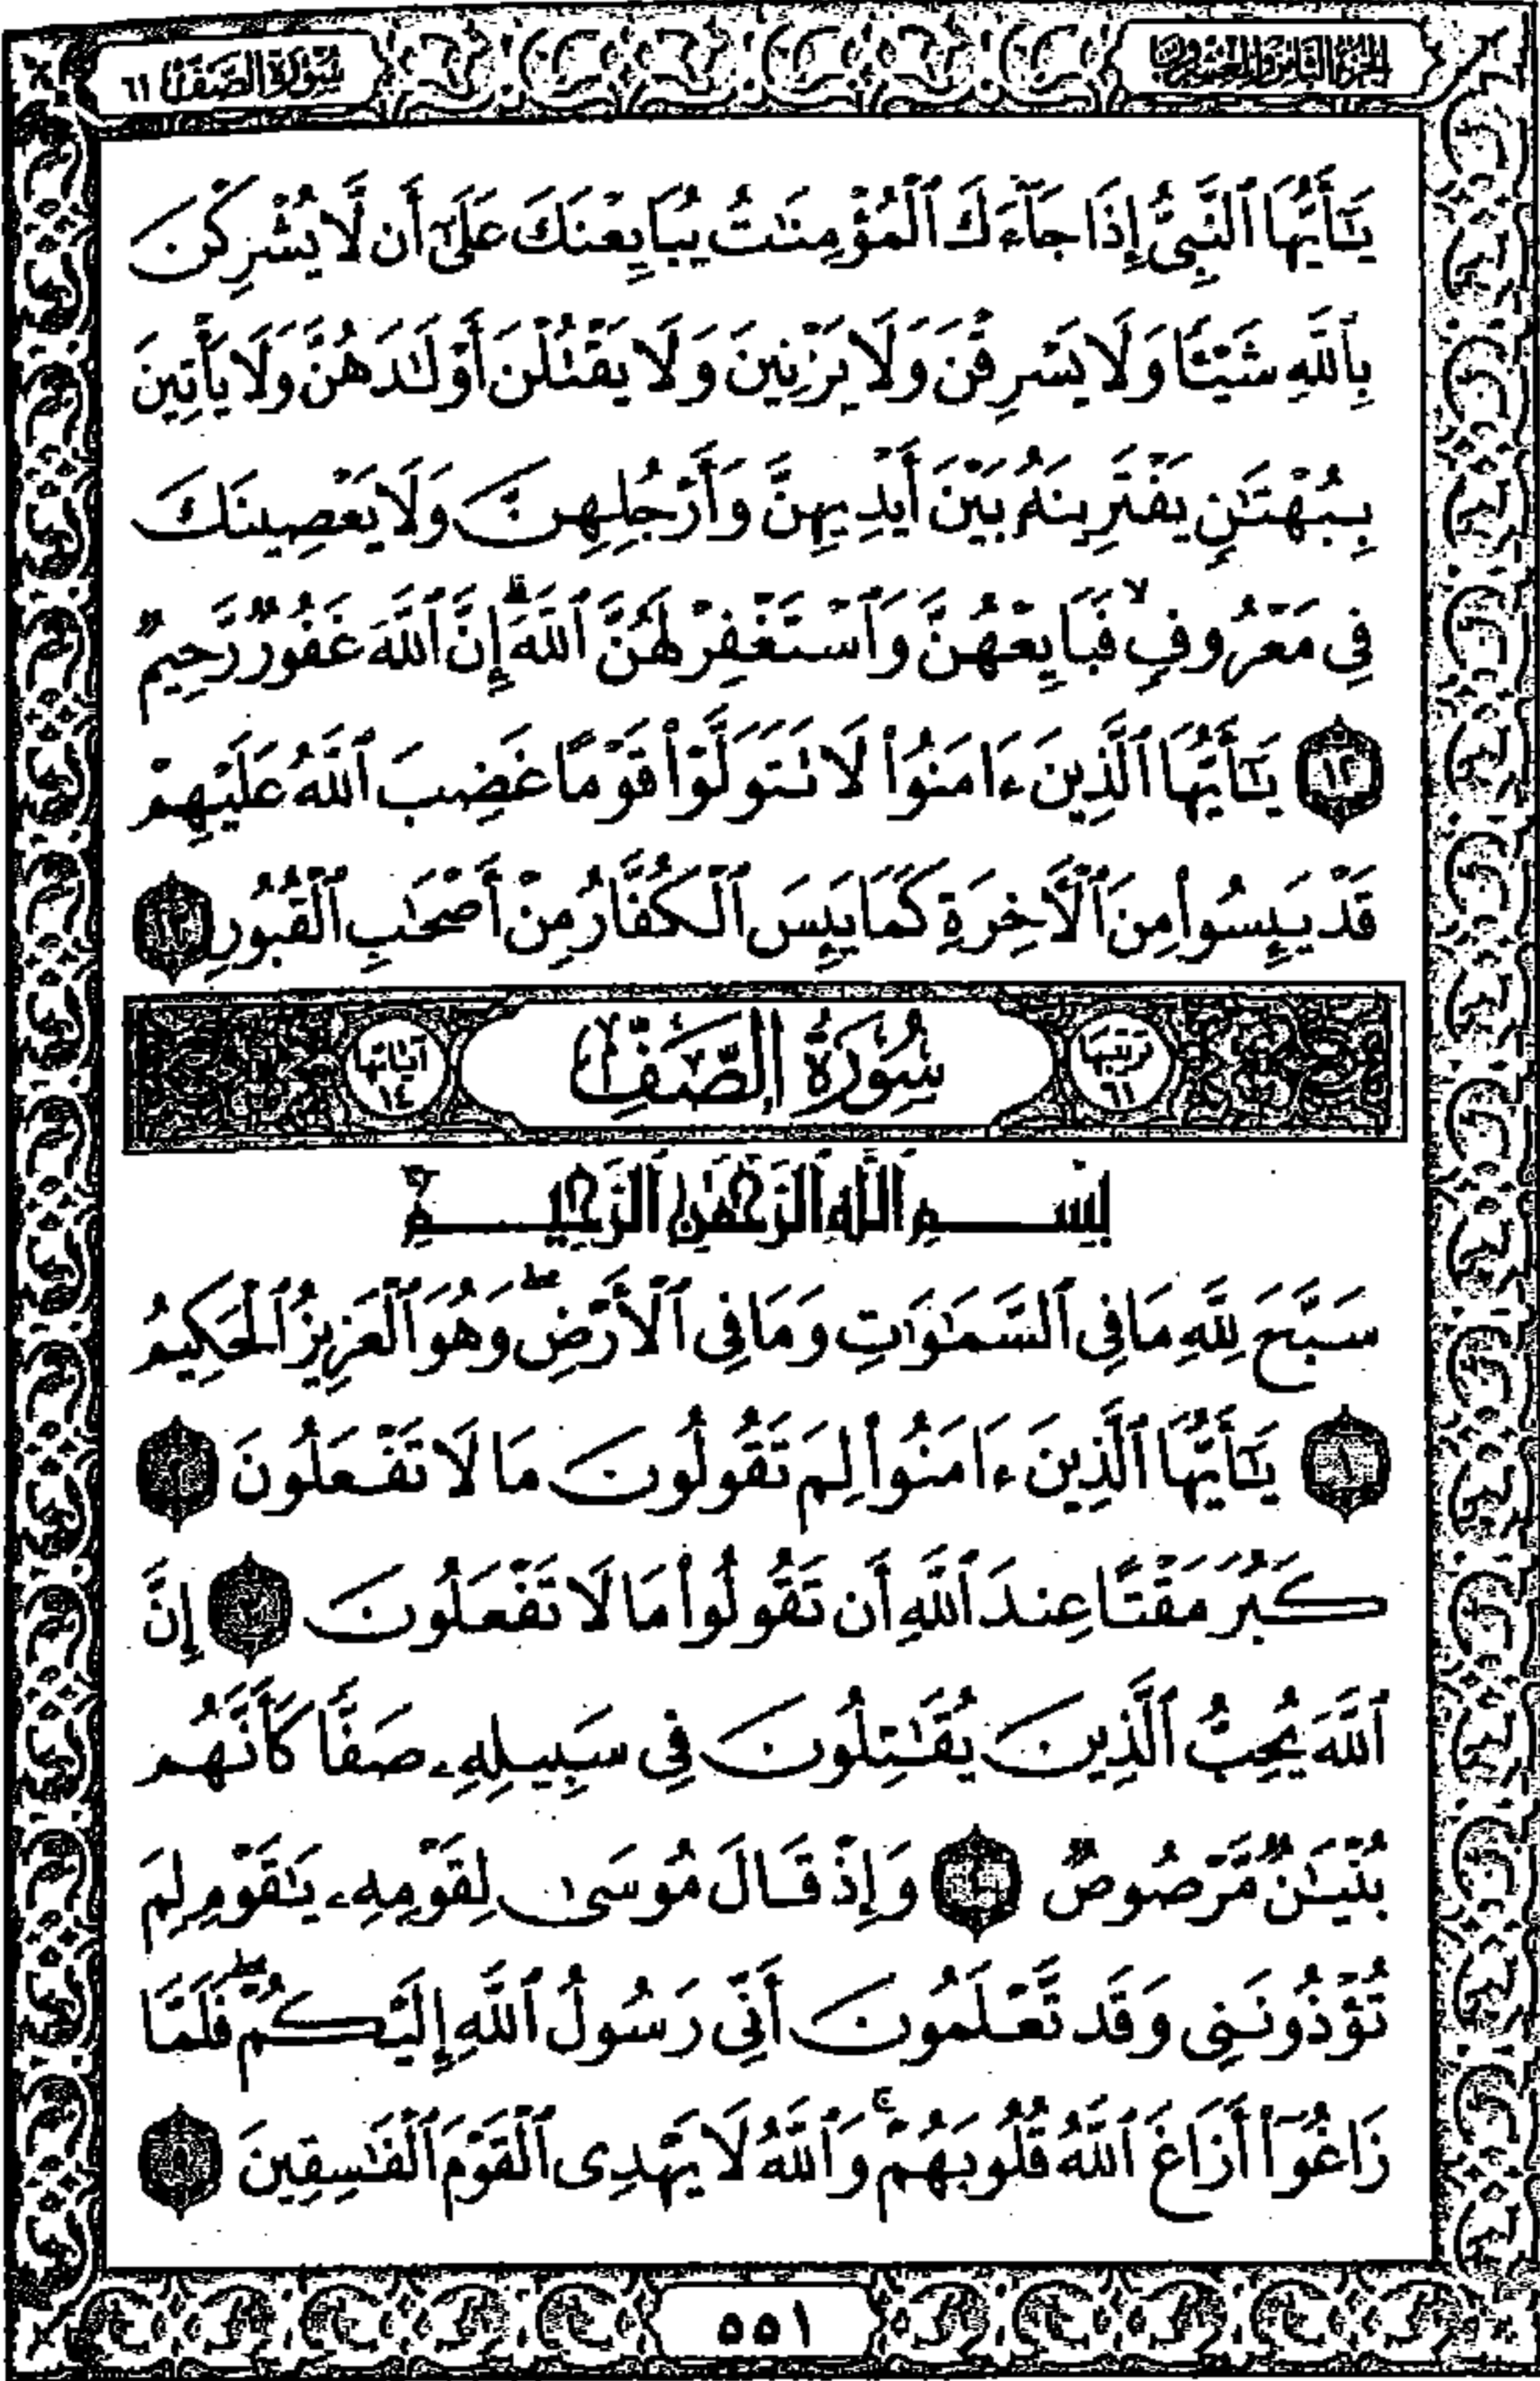 الجزء الثامن والعشرون
سورة الصف ٦١
يَٰٓأَيُّهَا ٱلنَّبِىُّ إِذَا جَآءَكَ ٱلْمُؤْمِنَٰتُ يُبَايِعْنَكَ عَلَىٰٓ أَن لَّا يُشْرِكْنَ
بِٱللَّهِ شَيْـًٔا وَلَا يَسْرِقْنَ وَلَا يَزْنِينَ وَلَا يَقْتُلْنَ أَوْلَٰدَهُنَّ وَلَا يَأْتِينَ
بِبُهْتَٰنٍ يَفْتَرِينَهُۥ بَيْنَ أَيْدِيهِنَّ وَأَرْجُلِهِنَّ وَلَا يَعْصِينَكَ
فِى مَعْرُوفٍ ۙ فَبَايِعْهُنَّ وَٱسْتَغْفِرْ لَهُنَّ ٱللَّهَ ۖ إِنَّ ٱللَّهَ غَفُورٌ رَّحِيمٌ
١٢ يَٰٓأَيُّهَا ٱلَّذِينَ ءَامَنُوا۟ لَا تَتَوَلَّوْا۟ قَوْمًا غَضِبَ ٱللَّهُ عَلَيْهِمْ
قَدْ يَئِسُوا۟ مِنَ ٱلْـَٔاخِرَةِ كَمَا يَئِسَ ٱلْكُفَّارُ مِنْ أَصْحَٰبِ ٱلْقُبُورِ ١٣
ترتيبها ٦١
سُورَةُ الصَّفِّ
آياتها ١٤
بِسْمِ ٱللَّهِ ٱلرَّحْمَٰنِ ٱلرَّحِيمِ
سَبَّحَ لِلَّهِ مَا فِى ٱلسَّمَٰوَٰتِ وَمَا فِى ٱلْأَرْضِ ۖ وَهُوَ ٱلْعَزِيزُ ٱلْحَكِيمُ
١ يَٰٓأَيُّهَا ٱلَّذِينَ ءَامَنُوا۟ لِمَ تَقُولُونَ مَا لَا تَفْعَلُونَ ٢
كَبُرَ مَقْتًا عِندَ ٱللَّهِ أَن تَقُولُوا۟ مَا لَا تَفْعَلُونَ ٣ إِنَّ
ٱللَّهَ يُحِبُّ ٱلَّذِينَ يُقَٰتِلُونَ فِى سَبِيلِهِۦ صَفًّا كَأَنَّهُم
بُنْيَٰنٌ مَّرْصُوصٌ ٤ وَإِذْ قَالَ مُوسَىٰ لِقَوْمِهِۦ يَٰقَوْمِ لِمَ
تُؤْذُونَنِى وَقَد تَّعْلَمُونَ أَنِّى رَسُولُ ٱللَّهِ إِلَيْكُمْ ۖ فَلَمَّا
زَاغُوٓا۟ أَزَاغَ ٱللَّهُ قُلُوبَهُمْ ۚ وَٱللَّهُ لَا يَهْدِى ٱلْقَوْمَ ٱلْفَٰسِقِينَ ٥
٥٥١